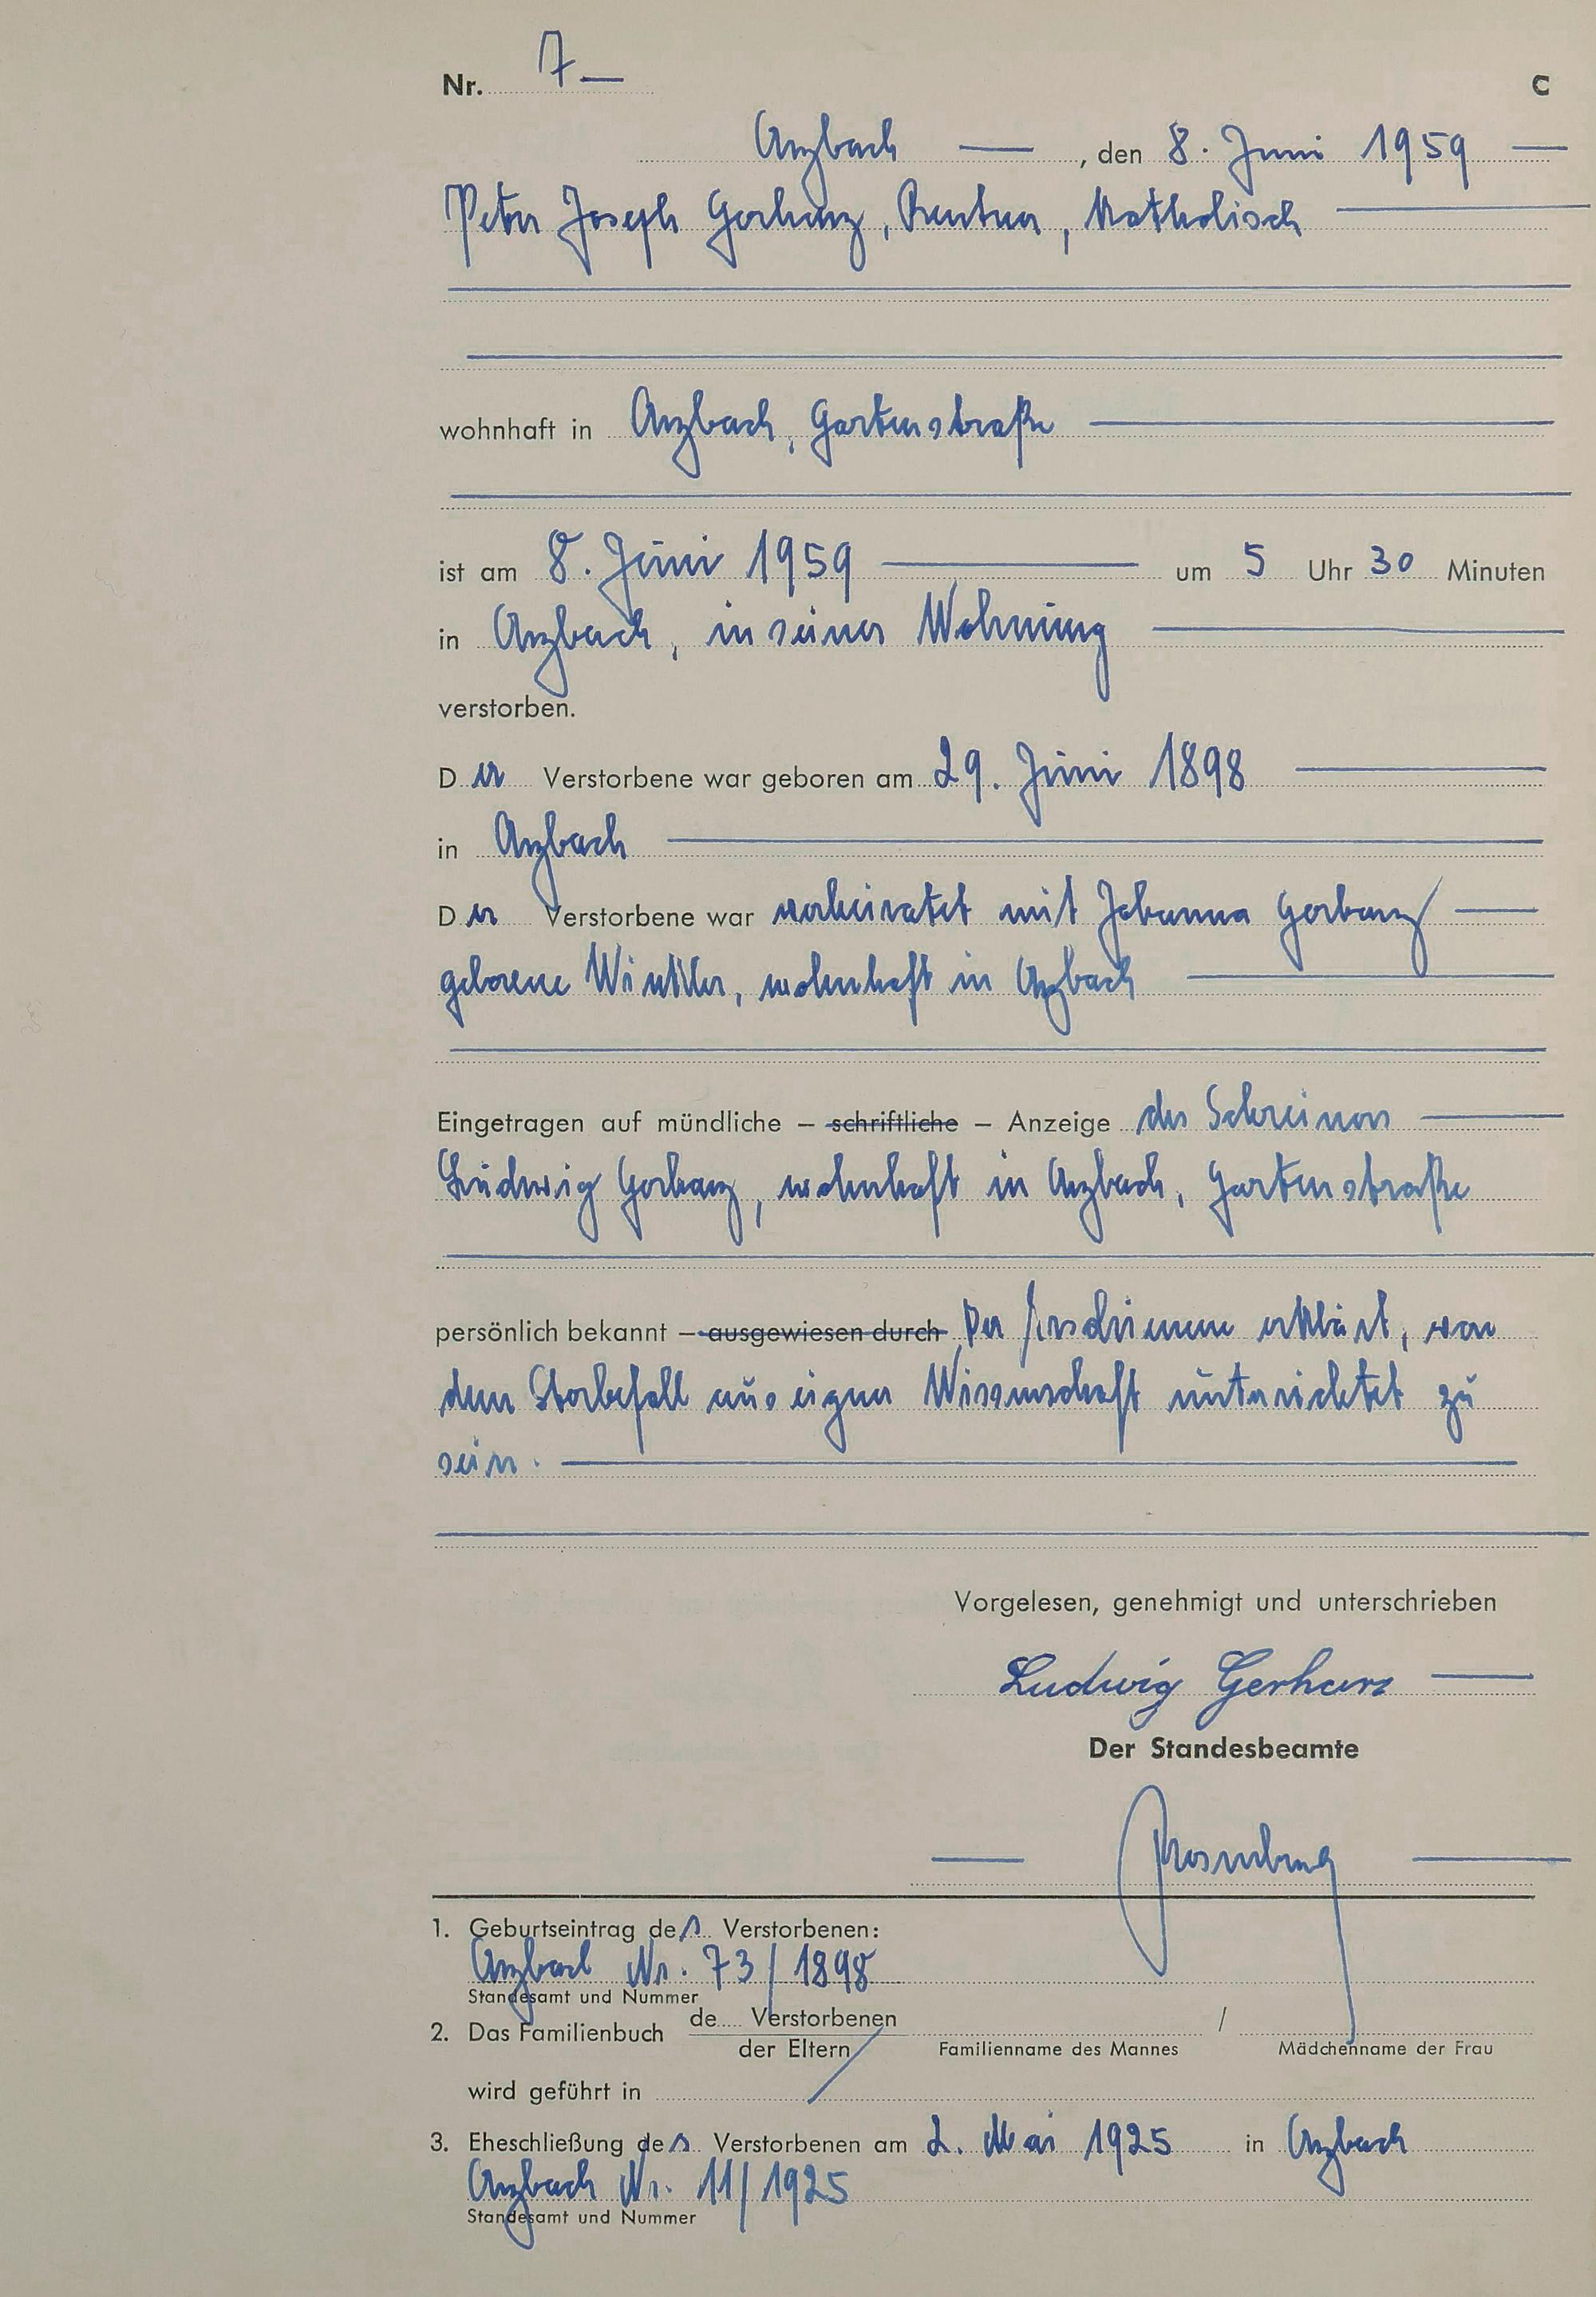 Nr. 7 — C
Arzbach — , den 8. Juni 1959 —
Peter Joseph Gerharz, Rentner, katholisch —
wohnhaft in Arzbach, Gartenstraße —
ist am 8. Juni 1959 — um 5 Uhr 30 Minuten
in Arzbach, in seiner Wohnung —
verstorben.
Der Verstorbene war geboren am 29. Juni 1898 —
in Arzbach —
Der Verstorbene war verheiratet mit Johanna Gerharz —
geborene Winkler, wohnhaft in Arzbach —
Eingetragen auf mündliche – schriftliche – Anzeige des Schreiners —
Ludwig Gerharz, wohnhaft in Arzbach, Gartenstraße
persönlich bekannt – ausgewiesen durch Der Erschienene erklärt, von
dem Sterbefall aus eigner Wissenschaft unterrichtet zu
sein. —
Vorgelesen, genehmigt und unterschrieben
Ludwig Gerharz —
Der Standesbeamte
1. Geburtseintrag des Verstorbenen:
Arzbach Nr. 73/1898
Standesamt und Nummer
2. Das Familienbuch de Verstorbenen /
der Eltern Familienname des Mannes Mädchenname der Frau
wird geführt in
3. Eheschließung des Verstorbenen am 2. Mai 1925 in Arzbach
Arzbach Nr. 11/1925
Standesamt und Nummer